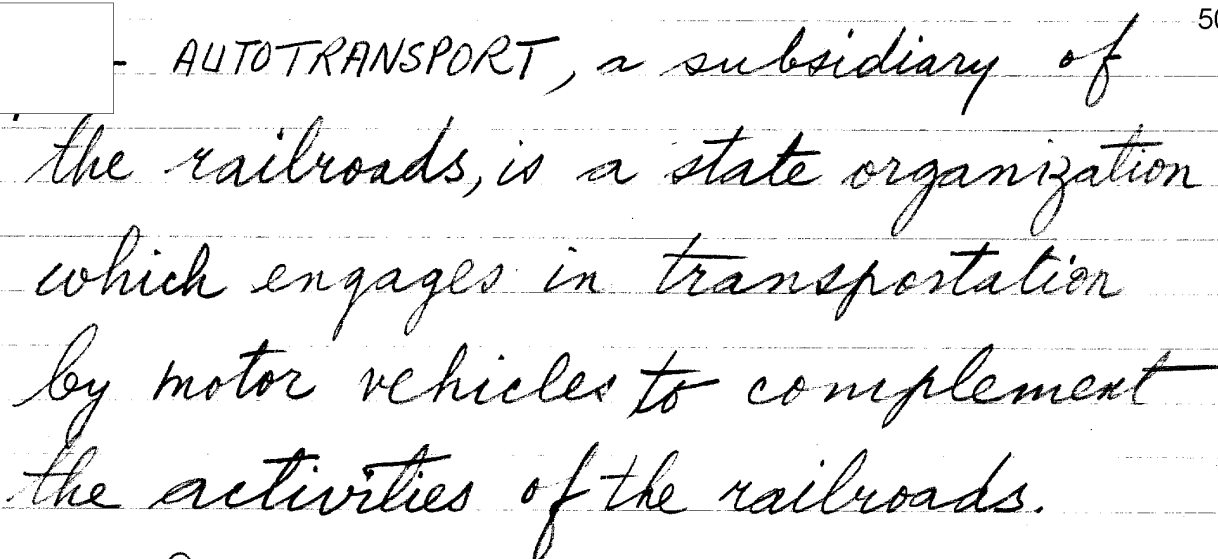 50
- AUTOTRANSPORT, a subsidiary of
the railroads, is a state organization
which engages in transportation
by motor vehicles to complement
the activities of the railroads.